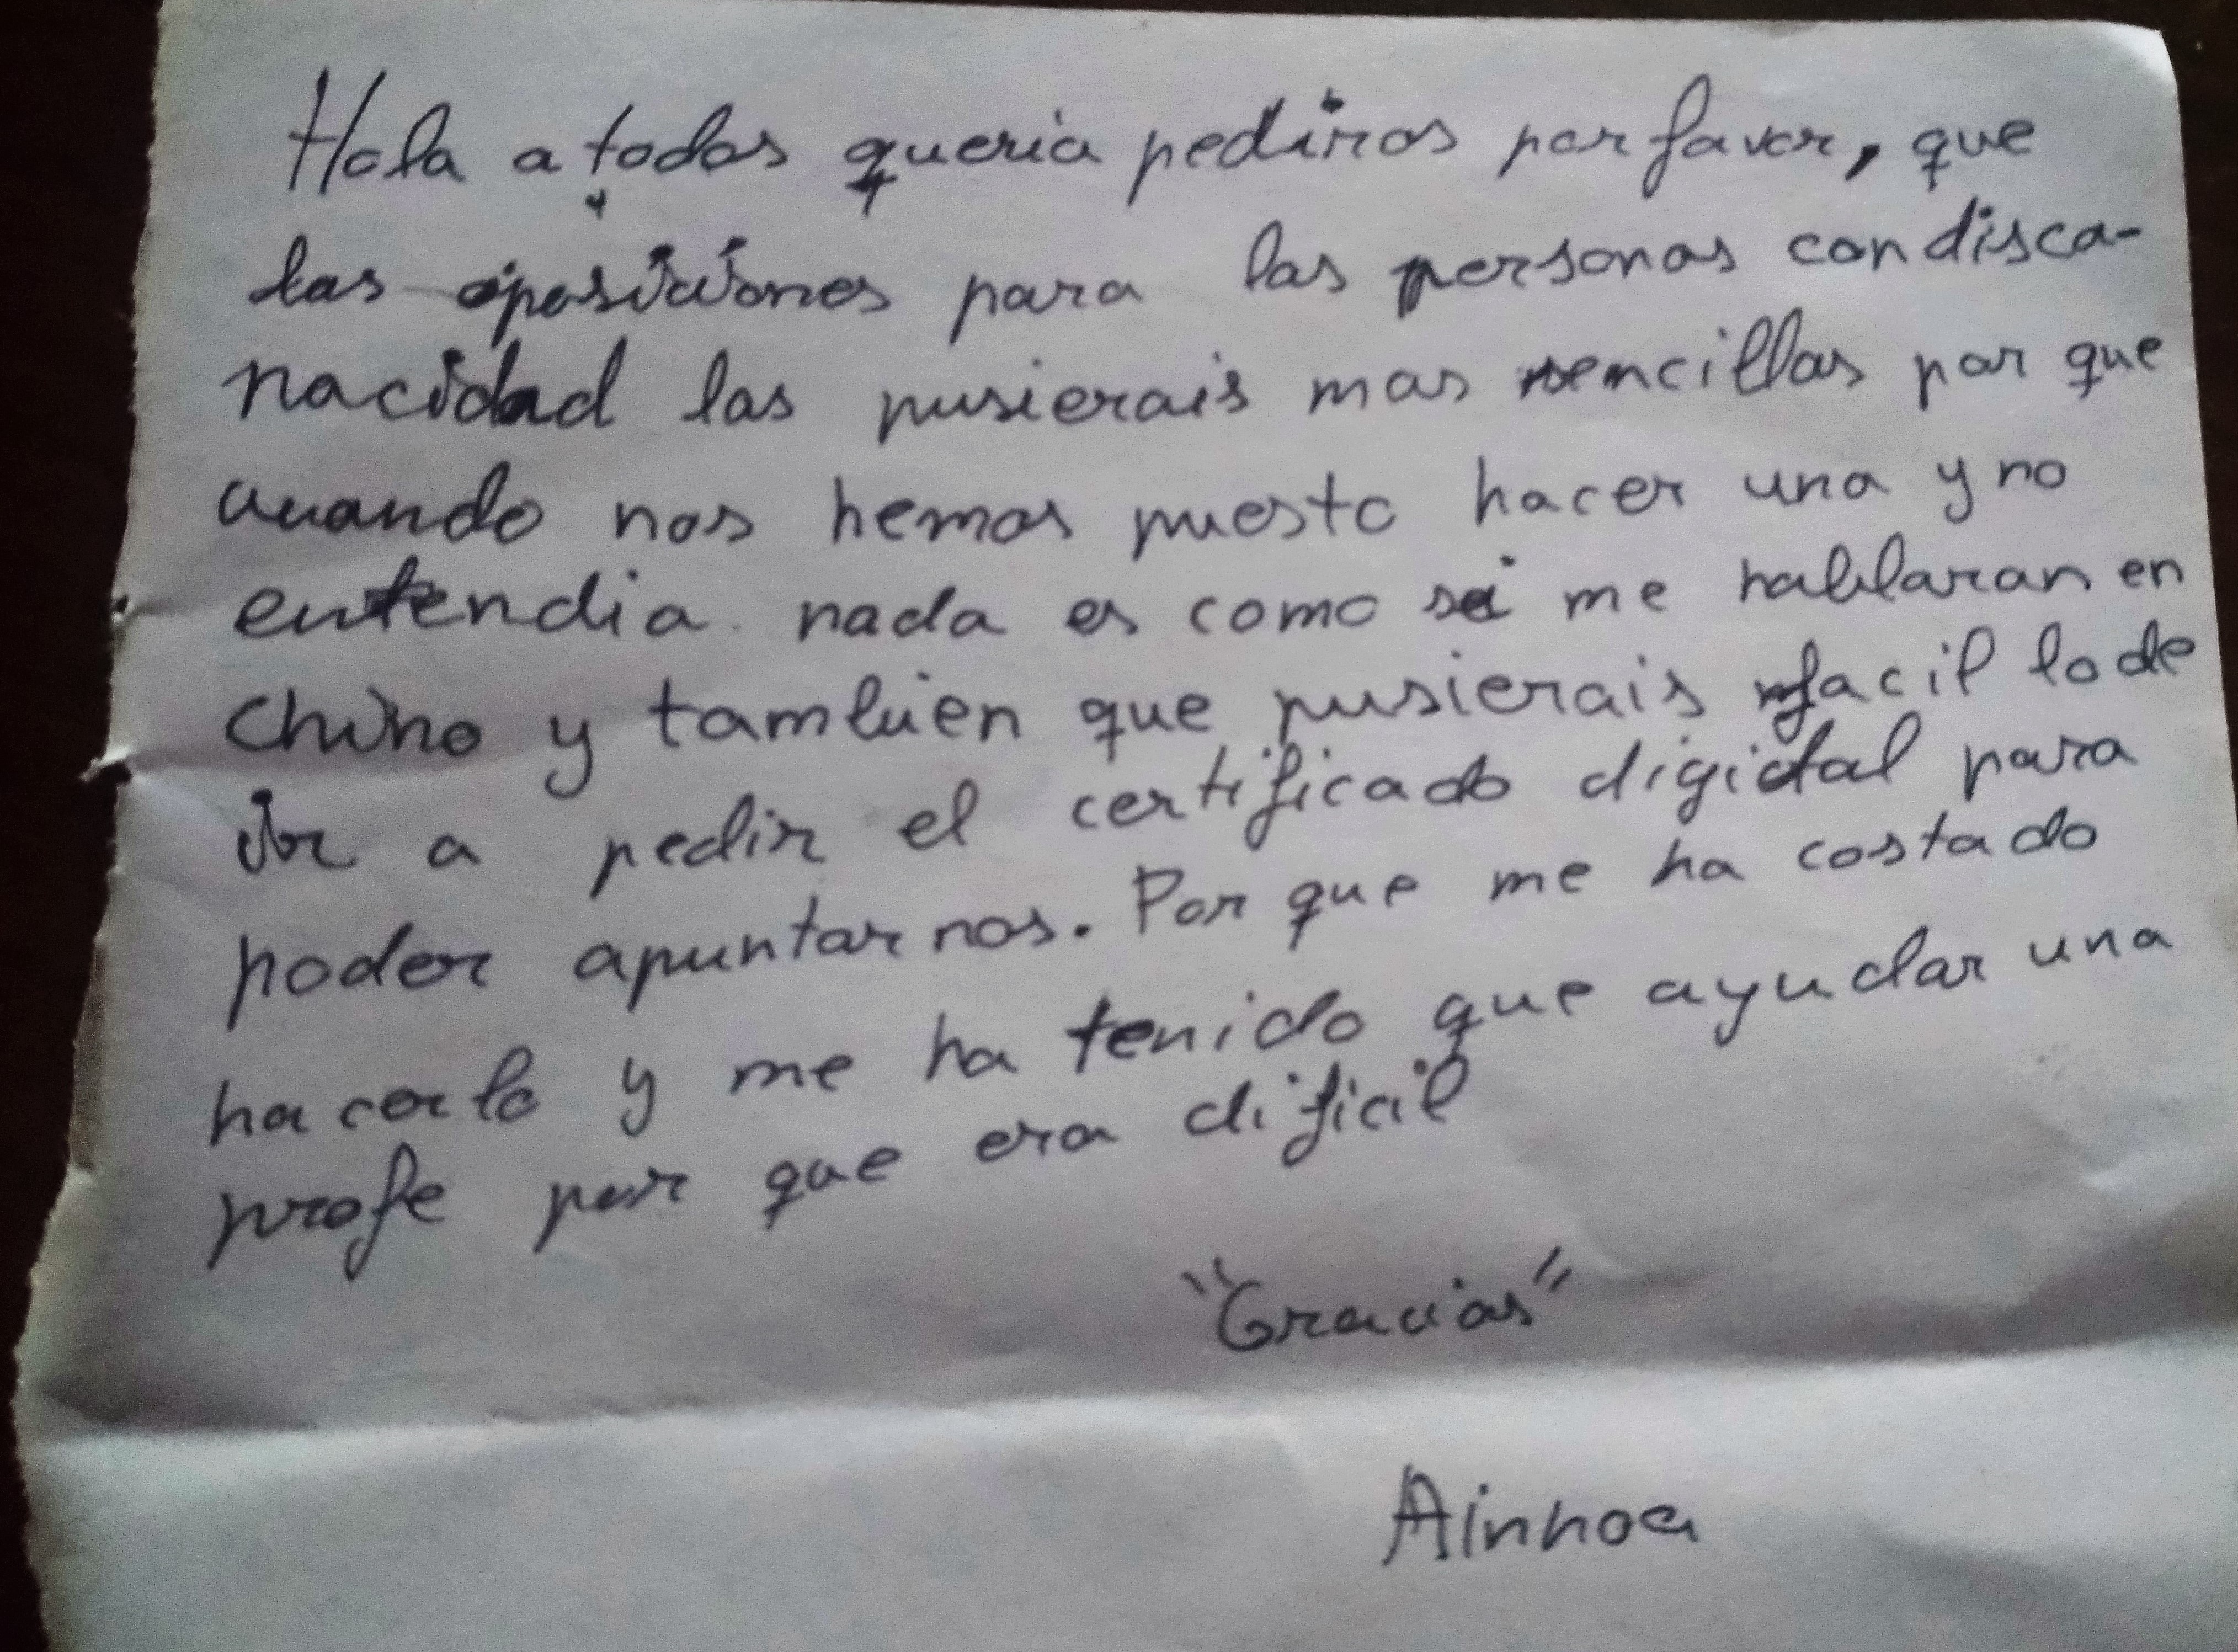 Hola a todos queria pediros por favor, que
las oposiciones para las personas con disca-
pacidad las pusierais mas sencillas por que
cuando nos hemos puesto hacer una y no
entendia nada es como si me hablaran en
chino y tambien que pusierais facil lo de
ir a pedir el certificado digital para
poder apuntarnos. Por que me ha costado
hacerlo y me ha tenido que ayudar una
profe por que era dificil
"Gracias"
Ainhoa